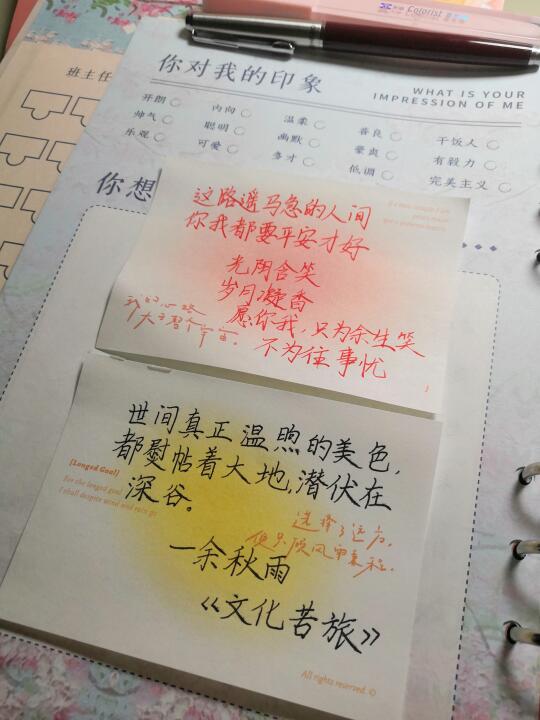 Colorist
你对我的印象
WHAT IS YOUR
IMPRESSION OF ME
班主任
开朗 内向 温柔 善良 干饭人
帅气 聪明 幽默 豪爽 有毅力
乐观 可爱 多才 低调 完美主义
你想
这路遥马急的人间
你我都要平安才好
光阴含笑
岁月凝香
愿你我,只为余生笑
不为往事忧
大于整个宇宙。
世间真正温煦的美色,
都熨帖着大地,潜伏在
深谷。
[Longed Goal]
For the longed goal
I shall despise wind and rain go
选择了远方,
便只顾风雨兼程.
—余秋雨
《文化苦旅》
All rights reserved. ©